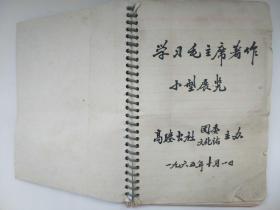 学习毛主席著作
小型展览
高楼公社 团委 文化站 主办
一九六五年十月一日